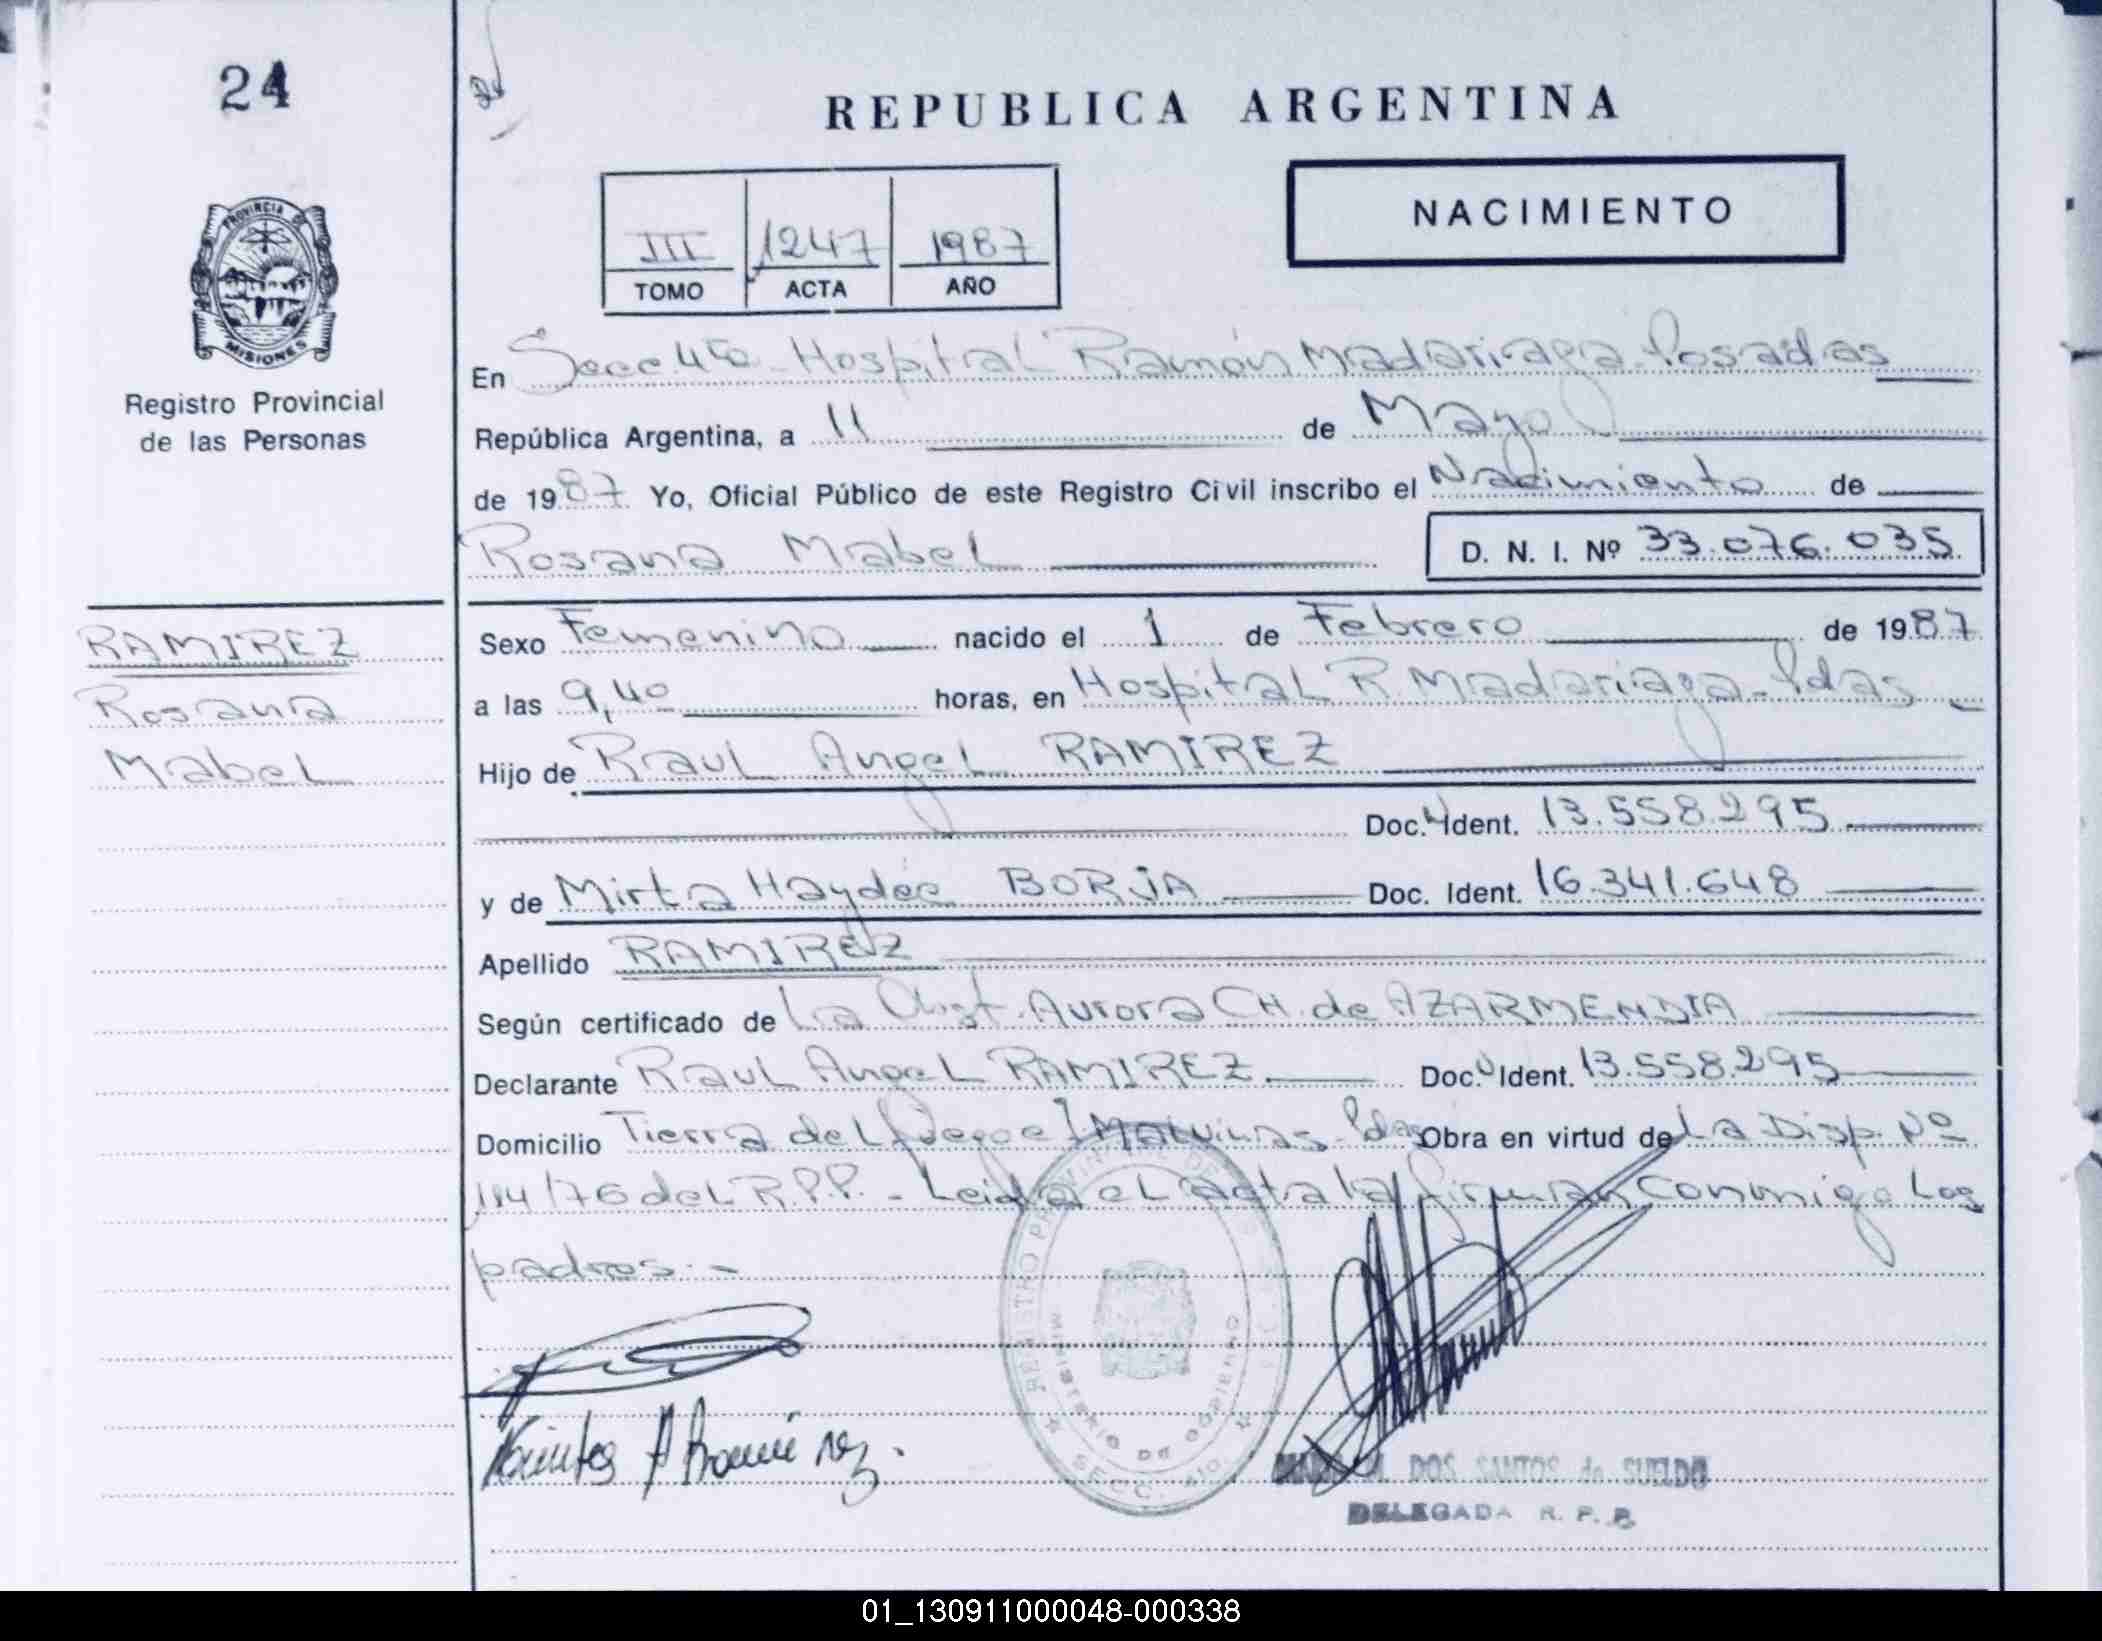 24
REPUBLICA ARGENTINA
NACIMIENTO
III 1247 1987
TOMO ACTA AÑO
PROVINCIA DE
MISIONES
Registro Provincial
de las Personas
En Secc 4ta - Hospital Ramón Madariaga - Posadas
República Argentina, a 11 de Mayo
de 1987 Yo, Oficial Público de este Registro Civil inscribo el Nacimiento de
Rosana Mabel D. N. I. Nº 33.076.035
RAMIREZ
Rosana
Mabel
Sexo Femenino nacido el 1 de Febrero de 1987
a las 9,40 horas, en Hospital R. Madariaga - Pdas
Hijo de Raul Angel RAMIREZ
Doc. Ident. 13.558.295
y de Mirta Haydée BORJA Doc. Ident. 16.341.648
Apellido RAMIREZ
Según certificado de La Obst. Aurora CH. de AZARMENDIA
Declarante Raul Angel RAMIREZ Doc. Ident. 13.558.295
Domicilio Tierra del fuego e I Malvinas - Pdas Obra en virtud de La Disp. Nº
114/76 del R.P.P. - Leida el acta la firman conmigo los
padres. -
REGISTRO PROVINCIAL DE LAS
MINISTERIO DE GOBIERNO
SECC. 4ta.
DOS SANTOS de SUELDO
DELEGADA R. P. P.
01_130911000048-000338